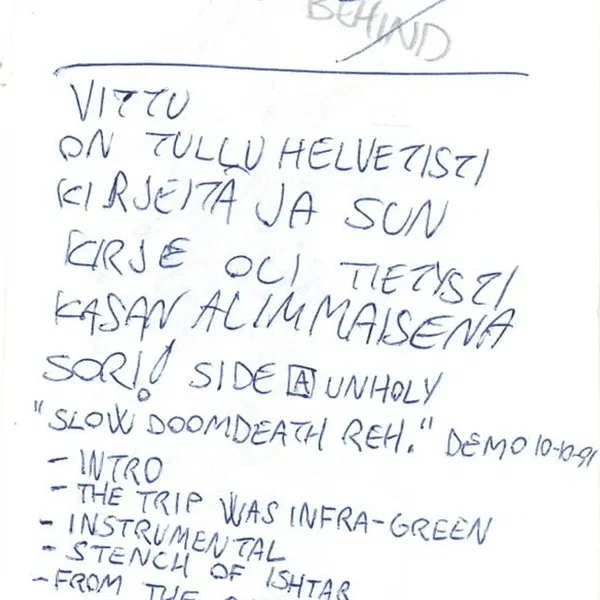 BEHIND
VITTU
ON TULLU HELVETISTI
KIRJEITÄ JA SUN
KIRJE OLI TIETYSTI
KASAN ALIMMAISENA
SORI! SIDE A UNHOLY
"SLOW DOOMDEATH REH." DEMO 10-10-91
- INTRO
- THE TRIP WAS INFRA-GREEN
- INSTRUMENTAL
- STENCH OF ISHTAR
- FROM THE